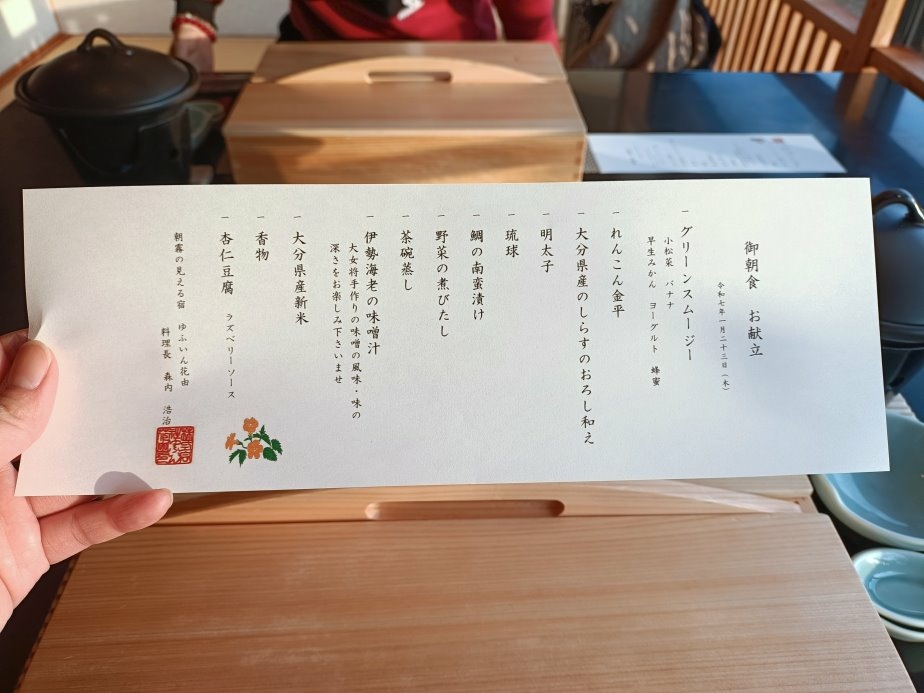 御朝食　お献立
令和七年一月二十三日（木）
一　グリーンスムージー
小松菜　バナナ
早生みかん　ヨーグルト　蜂蜜
一　れんこん金平
一　大分県産のしらすのおろし和え
一　明太子
一　琉球
一　鯛の南蛮漬け
一　野菜の煮びたし
一　茶碗蒸し
一　伊勢海老の味噌汁
大女将手作りの味噌の風味・味の
深さをお楽しみ下さいませ
一　大分県産新米
一　香物
一　杏仁豆腐　ラズベリーソース
朝霧の見える宿　ゆふいん花由
料理長　森内　浩治